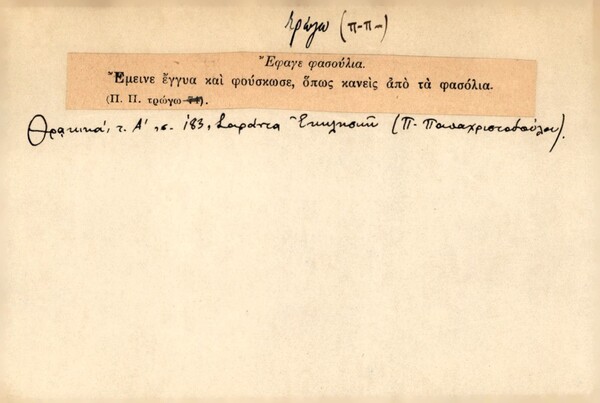 τρώγω (π-π-)
Ἔφαγε φασούλια.
Ἔμεινε ἔγγυα καὶ φούσκωσε, ὅπως κανεὶς ἀπὸ τὰ φασόλια.
(Π. Π. τρώγω).
Θρᾳκικά, τ. Α' σ. 183, Σαράντα Ἐκκλησιῶν (Π. Παπαχριστοδούλου).